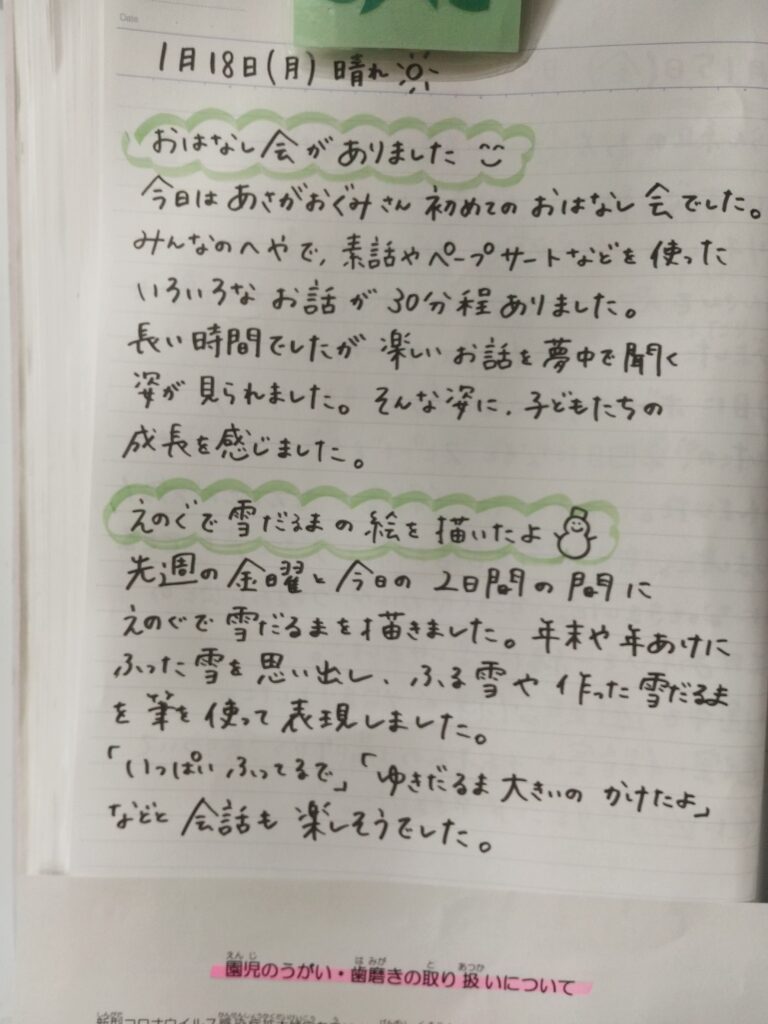 Date
1月18日(月) 晴れ
おはなし会がありました
今日は あさがおぐみさん 初めての おはなし会でした。
みんなのへやで、素話や ペープサートなどを 使った
いろいろな お話が 30分程ありました。
長い時間でしたが 楽しい お話を夢中で聞く
姿が 見られました。そんな姿に、子どもたちの
成長を感じました。
えのぐで 雪だるまの 絵を 描いたよ
先週の 金曜と 今日の 2日間の 間に
えのぐで 雪だるまを描きました。年末や 年あけに
ふった雪を 思い出し、ふる雪や 作った 雪だるま
を 筆を使って 表現しました。
「いっぱい ふってるで」「ゆきだるま 大きいの かけたよ」
などと 会話も 楽しそうでした。
園児のうがい・歯磨きの取り扱いについて
新型コロナウイルス